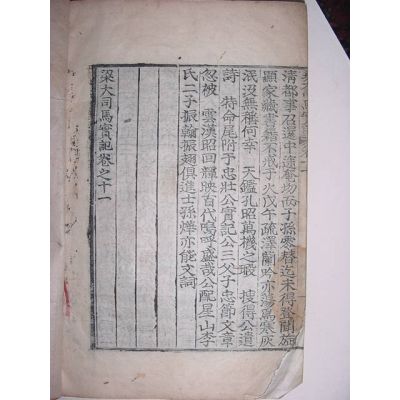 淸都事召還中途奄忽而子孫零替迄未得登聞旌
顯家藏書籍不戒于火戊午疏澤蘭吟亦蕩爲寒灰
泯沒無稱何幸 天鑑孔昭萬機之暇 搜得公遺
詩 特命尾附于忠壯公實記公三父子忠節文章
忽被 雲漢昭回輝映百代嗚呼盛哉公配星山李
氏二子振翰振翮俱進士孫燁亦能文詞
梁大司馬實記卷之十一